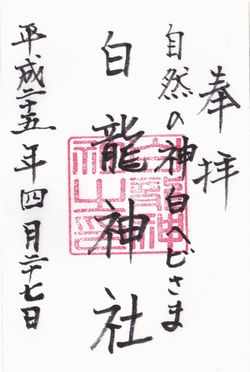 奉拝
自然の神白へびさま
白龍神社
平成二十五年四月二十七日